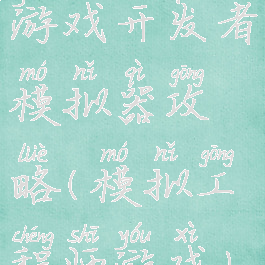 游戏开发者
mó nǐ qì gōng
模拟器攻
lüè mó nǐ gōng
略(模拟工
chéng shī yóu xì
程师游戏)